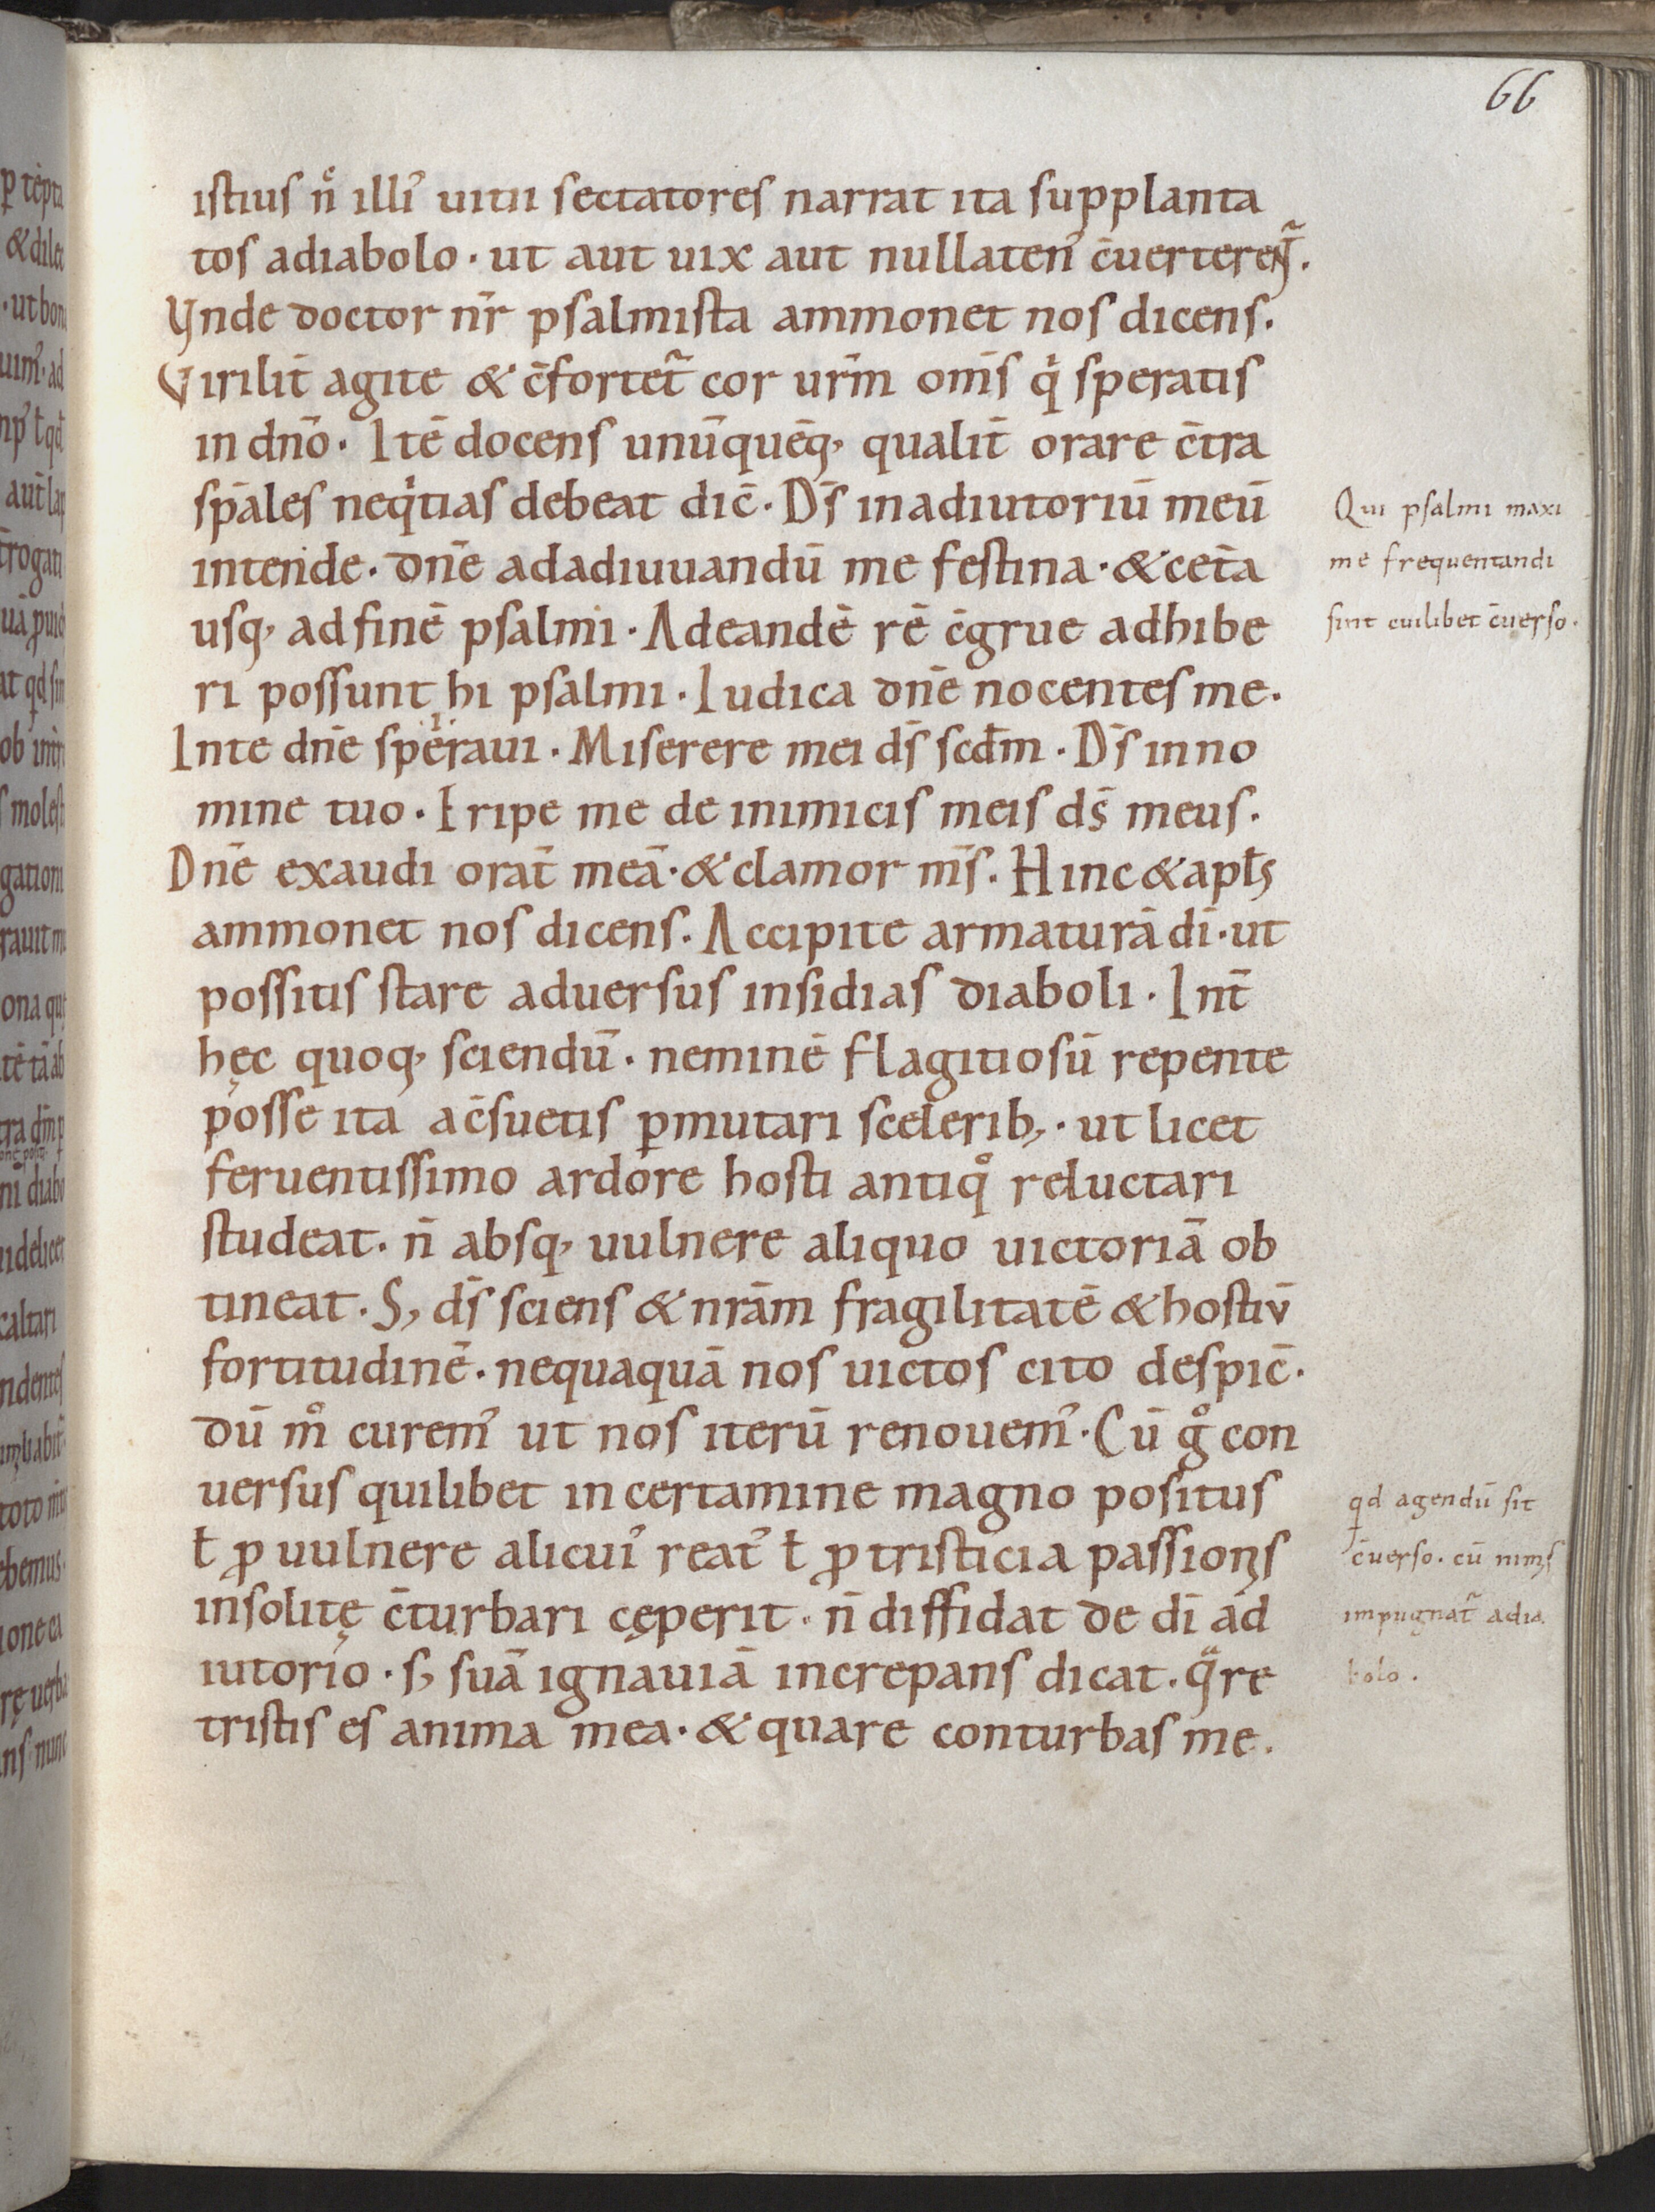 66
istius n̊ illi᾽ uitii sectatores narrat ita supplanta
tos adiabolo · ut aut uix aut nullaten᾽ c̄uerterent᷑.
Vnde doctor nr̄ psalmista ammonet nos dicens.
Virilit̄ agite & c̄fortet᷑ cor ur̄m om̄s qͥ speratis
in dn̄o · Itē docens unūquēq, qualit̄ orare c̄tra
sp̄ales neqͥtias debeat dic̄ · Ds̄ inadiutoriū meū
intende · dn̄e adadiuuandū me festina · & cet̄a
usq, adfinē psalmi · Adeandē rē c̄grue adhibe
ri possunt hi psalmi · Iudica dn̄e nocentes me.
Inte dn̄e speraui · Miserere mei ds̄ scd̄m · Ds̄ inno
mine tuo · Eripe me de inimicis meis ds̄ meus.
Dn̄e exaudi orat̄ meā · & clamor ms̄. Hinc & apl̄s
ammonet nos dicens. Accipite armaturā dī · ut
possitis stare aduersus insidias diaboli · Int̄
hęc quoq, sciendū · neminē flagitiosū repente
posse ita ac̄suetis ꝑmutari scelerib; · ut licet
feruentissimo ardore hosti antiqͦ reluctari
studeat · n̄ absq, uulnere aliquo uictoriā ob
tineat · S; ds̄ sciens & nrām fragilitatē & hostiū
fortitudinē · nequaquā nos uictos cito despic̄ ·
dū mͦ curem᾽ ut nos iterū renouem᾽ · Cū gͦ con
uersus quilibet in certamine magno positus
ł ꝓ uulnere alicui᾽ reat᾽ ł ꝓ tristicia passionꝭs
insolitę c̄turbari cęperit · n̄ diffidat de dī ad
iutorio · s; suā ignauiā increpans dicat · qͣre
tristis es anima mea · & quare conturbas me.
Qui psalmi maxi
me frequentandi
sint cuilibet c̄uerso.
qd agendū sit
c̄uerso. cū nimꝭs
impugnat᷑ adia
bolo.